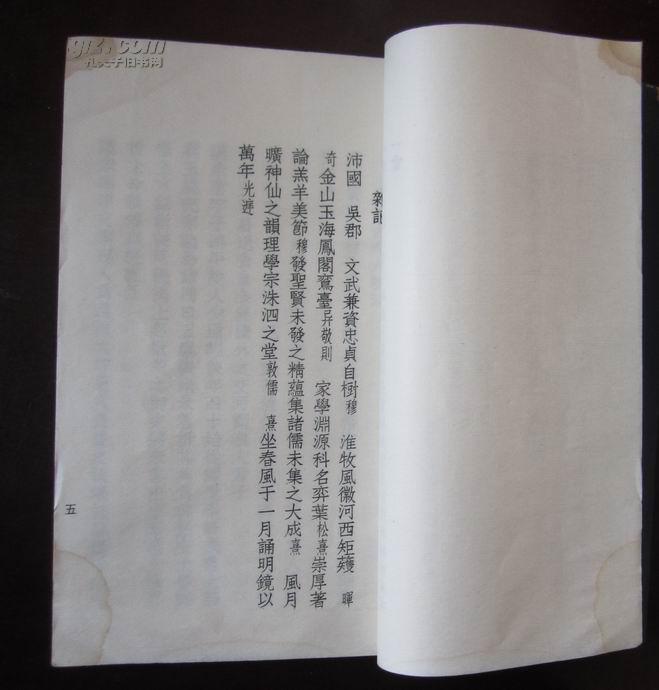 雜記
沛國　吳郡　文武兼資忠貞自樹穆　淮牧風徽河西矩矱　暉
奇金山玉海鳳閣鸞臺异敬則　家學淵源科名弈葉松熹崇厚著
論羔羊美節穆發聖賢未發之精蘊集諸儒未集之大成熹　風月
曠神仙之韻理學宗洙泗之堂敦儒　熹坐春風于一月誦明鏡以
萬年光遞
五
九七子旧书网